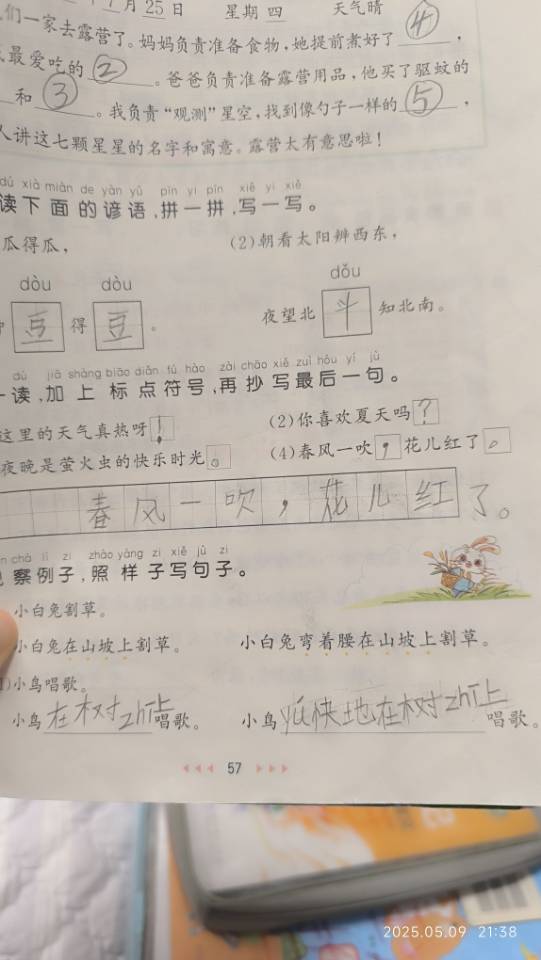 7月25日 星期四 天气晴
们一家去露营了。妈妈负责准备食物,她提前煮好了④,
最爱吃的②。爸爸负责准备露营用品,他买了驱蚊的
和③。我负责“观测”星空,找到像勺子一样的⑤,
人讲这七颗星星的名字和寓意。露营太有意思啦!
dú xià miàn de yàn yǔ pīn yi pīn xiě yi xiě
读下面的谚语,拼一拼,写一写。
瓜得瓜, (2)朝看太阳辨西东,
dòu dòu dǒu
豆得豆。 夜望北斗知北南。
dú jiā shàng biāo diǎn fú hào zài chāo xiě zuì hòu yí jù
一读,加上标点符号,再抄写最后一句。
这里的天气真热呀! (2)你喜欢夏天吗?
夜晚是萤火虫的快乐时光。 (4)春风一吹,花儿红了。
春风一吹,花儿红了。
chá lì zi zhào yàng zi xiě jù zi
察例子,照样子写句子。
小白兔割草。
小白兔在山坡上割草。 小白兔弯着腰在山坡上割草。
小鸟唱歌。
小鸟在树zhī上唱歌。 小鸟yú快地在树zhī上唱歌。
57
2025.05.09 21:38